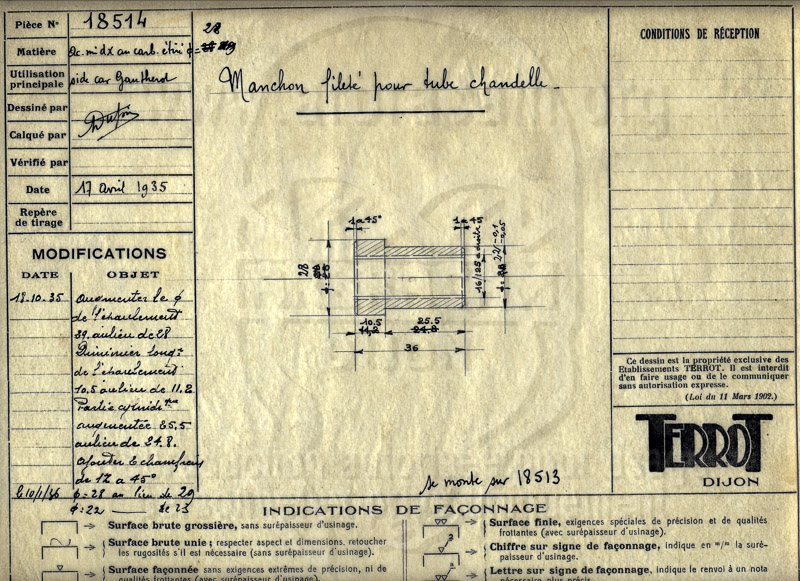 Pièce N° 18514
Matière Ac. mi dx au carb. étiré φ = 28
Utilisation principale side car Gautherot
Dessiné par
Calqué par
Vérifié par
Date 17 Avril 1935
Repère de tirage
MODIFICATIONS
DATE OBJET
18-10-35 augmenter le φ
de l'épaulement
29 au lieu de 28
Diminuer longr
de l'épaulement
10.5 au lieu de 11.2
Partie cylindrique
augmentée 25.5
au lieu de 24.8.
ajouter 2 chanfreins
de 1 à 45°
le 10/1/36 φ = 28 au lieu de 29
φ: 22 — de 23
Manchon fileté pour tube chandelle.
1 à 45°
1 à 45
28
φ =
16/125 à droite
φ =
22 -0,1
-0,05
10.5
11,2
25.5
24.8
36
se monte sur 18513
CONDITIONS DE RÉCEPTION
Ce dessin est la propriété exclusive des
Etablissements TERROT. Il est interdit
d'en faire usage ou de le communiquer
sans autorisation expresse.
(Loi du 11 Mars 1902.)
TERROT
DIJON
INDICATIONS DE FAÇONNAGE
Surface brute grossière, sans surépaisseur d'usinage.
Surface brute unie; respecter aspect et dimensions, retoucher
les rugosités s'il est nécessaire (sans surépaisseur d'usinage).
Surface façonnée sans exigences extrêmes de précision, ni de
qualités frottantes (avec surépaisseur d'usinage).
Surface finie, exigences spéciales de précision et de qualités
frottantes (avec surépaisseur d'usinage).
Chiffre sur signe de façonnage, indique en m/m la suré-
paisseur d'usinage.
Lettre sur signe de façonnage, indique le renvoi à un nota
nécessaire plus précis.